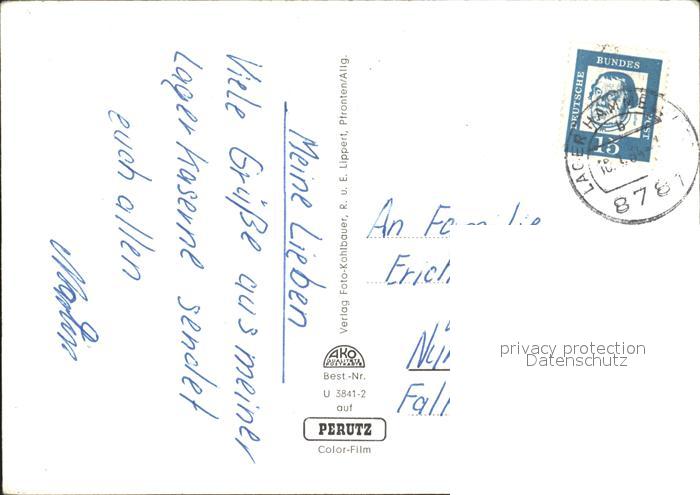 Meine Lieben
Viele Grüße aus meiner
Lagerkaserne sendet
euch allen
Verlag Foto-Kohlbauer, R. u. E. Lippert, Pfronten/Allg.
AKO
QUALITÄTS
POSTKARTE
Best.-Nr.
U 3841-2
auf
PERUTZ
Color-Film
DEUTSCHE
BUNDES
POST
15
LAGER HAMMELBURG
b
8781
An Familie
Erich
privacy protection
Datenschutz